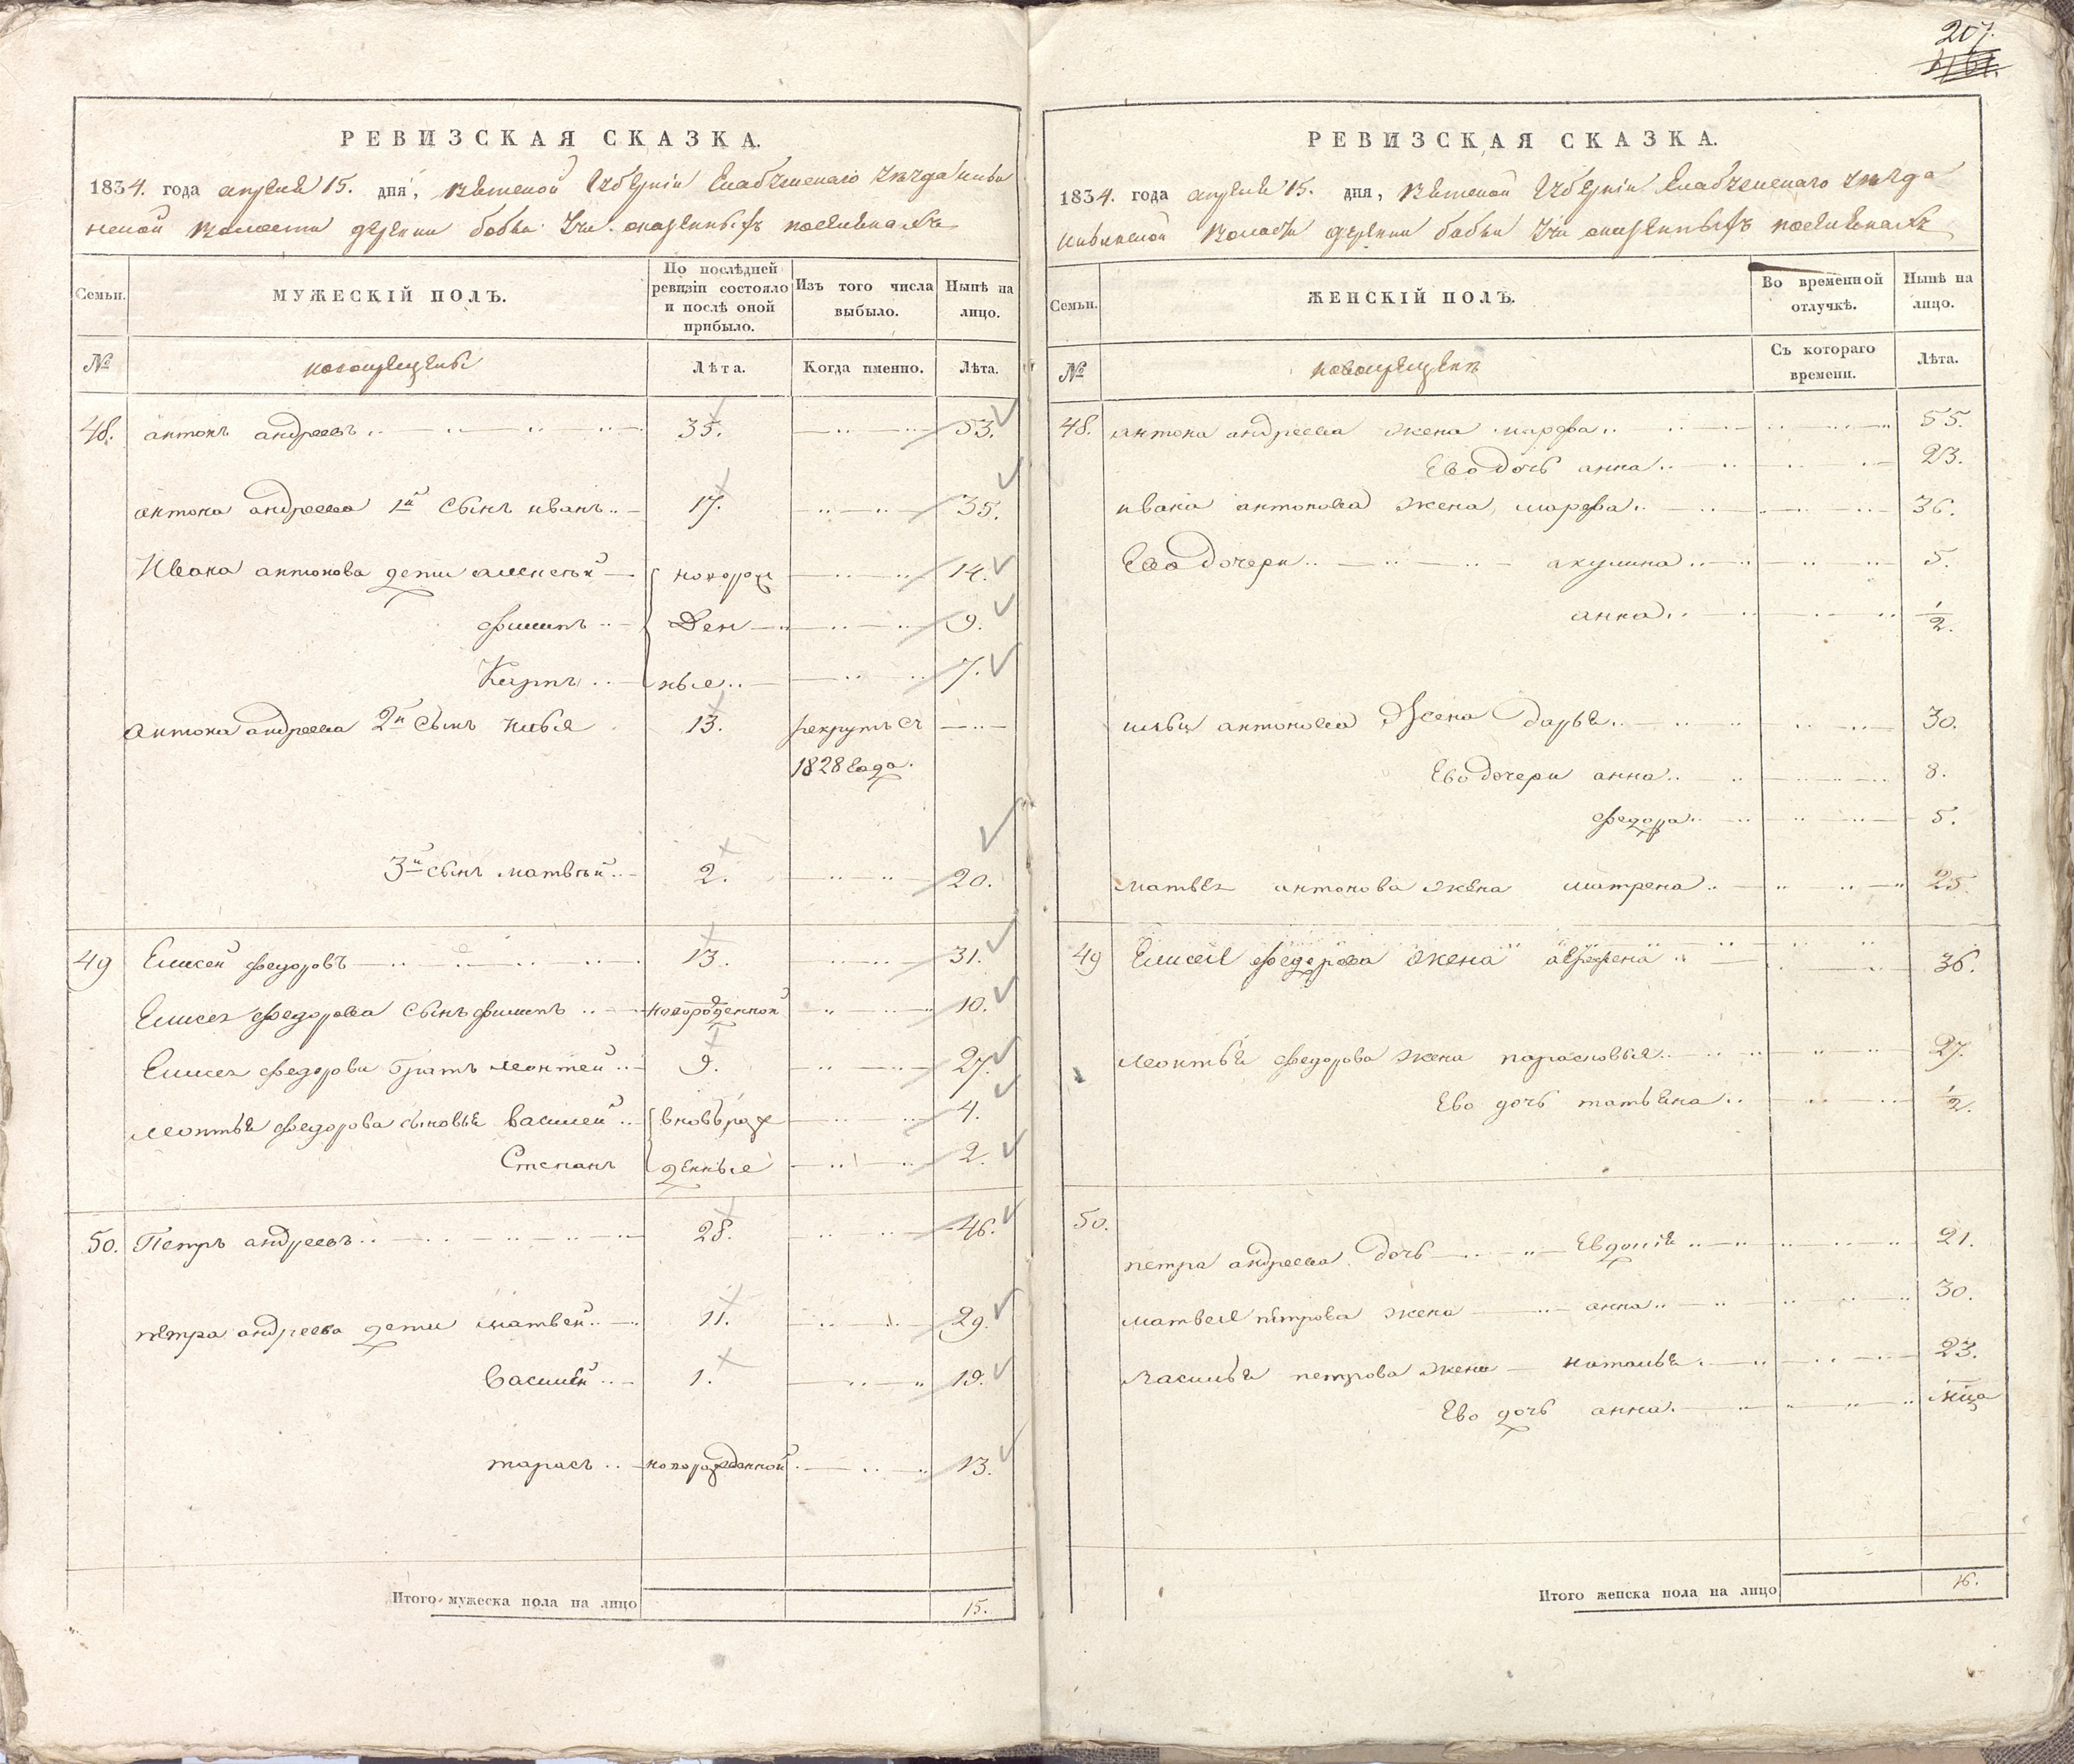 207.
РЕВИЗСКАЯ СКАЗКА.
1834. года апреля 15. дня, Вятской Губернии Елабужскаго уезда
волости деревни бобьи Учи поселянахъ
Семьи.
МУЖЕСКІЙ ПОЛЪ.
По послѣдней ревизіи состояло и послѣ оной прибыло.
Изъ того числа выбыло.
Нынѣ на лицо.
№
новокрещены
Лѣта.
Когда именно.
Лѣта.
48. антонъ андреевъ 35. 53.
антона андреева 1й сынъ иванъ 17. 35.
Ивана антонова дети алексѣй новорож 14.
филипъ ден 9.
Карпъ ные 7.
антона андреева 2й сынъ илья 13. рекрутъ съ
1828 года.
3й сынъ матвѣй 2. 20.
49 Елисей федоровъ 13. 31.
Елисея федорова сынъ филипъ новорожденной 10.
Елисея федорова братъ леонтей 9. 27.
леонтья федорова сыновья василей вновьрож 4.
Степанъ денные 2.
50. Петръ андреевъ 28. 46.
петра андреева дети матвей 11. 29.
Василей 1. 19.
тарасъ новорожденной 13.
Итого мужеска пола на лицо 15.
РЕВИЗСКАЯ СКАЗКА.
1834. года апреля 15. дня, Вятской Губернии Елабужскаго уезда
волости деревни бобьи Учи поселянахъ
Семьи.
ЖЕНСКІЙ ПОЛЪ.
Во временной отлучкѣ.
Нынѣ на лицо.
№
новокрещены
Съ котораго времени.
Лѣта.
48. антона андреева жена марфа 55.
Ево дочь анна 23.
ивана антонова жена марфа 36.
Ево дочери акулина 5.
анна 1/2.
ильи антонова жена дарья 30.
Ево дочери анна 8.
федора 5.
матвея антонова жена матрена 25.
49 Елисея федорова жена 36.
леонтья федорова жена парасковья 27.
Ево дочь татьяна 1/2.
50.
петра андреева дочь Евдокия 21.
матвея петрова жена анна 30.
василья петрова жена наталья 23.
Ево дочь анна
Итого женска пола на лицо 16.